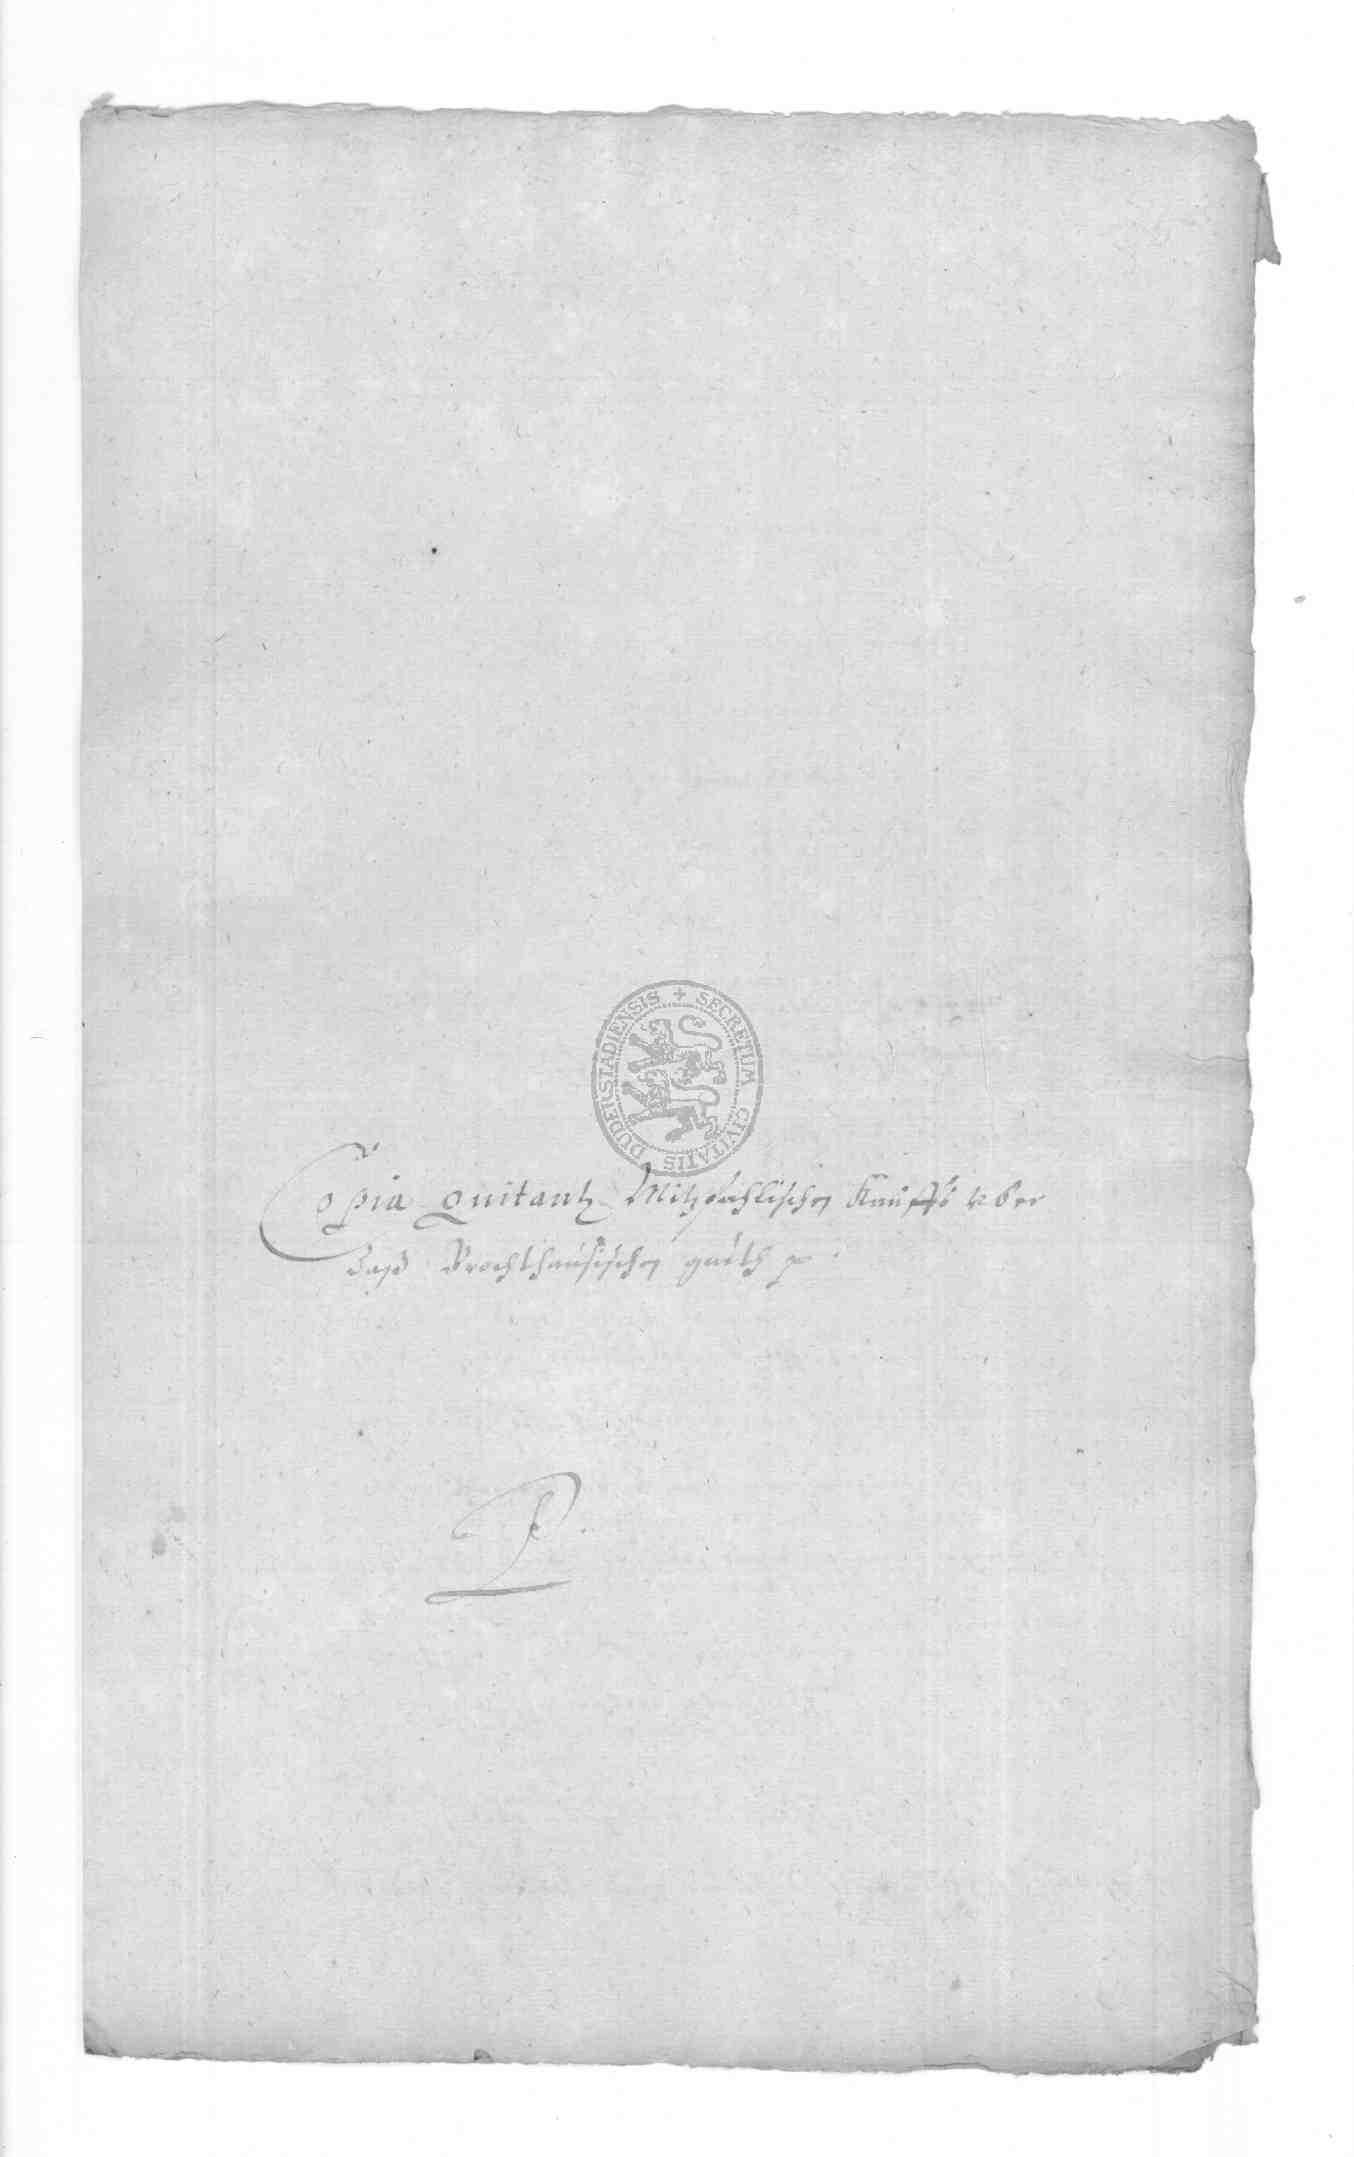 SECRETUM CIVITATIS DUDERSTADIENSIS
Copia quitantz Mitzefahlischen Kauffs vber
daß Brochthausischen guth
P.